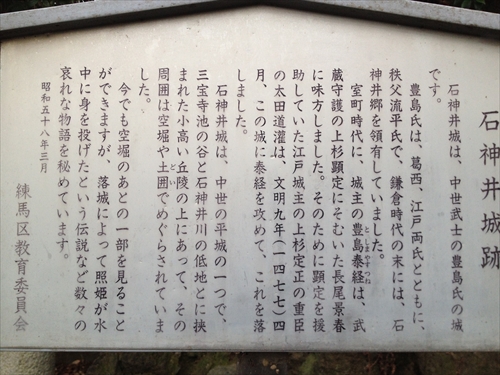 石神井城跡
石神井城は、中世武士の豊島氏の城
です。
豊島氏は、葛西、江戸両氏とともに、
秩父流平氏で、鎌倉時代の末には、石
神井郷を領有していました。
室町時代に、城主の豊島泰経は、武
としまやすつね
蔵守護の上杉顕定にそむいた長尾景春
に味方しました。そのために顕定を援
助していた江戸城主の上杉定正の重臣
の太田道灌は、文明九年(一四七七)四
月、この城に泰経を攻めて、これを落
しました。
石神井城は、中世の平城の一つで、
三宝寺池の谷と石神井川の低地とに挾
まれた小高い丘陵の上にあって、その
周囲は空堀や土囲でめぐらされていま
どい
した。
今でも空堀のあとの一部を見ること
ができますが、落城によって照姫が水
中に身を投げたという伝説など数々の
哀れな物語を秘めています。
昭和五十八年三月
練馬区教育委員会